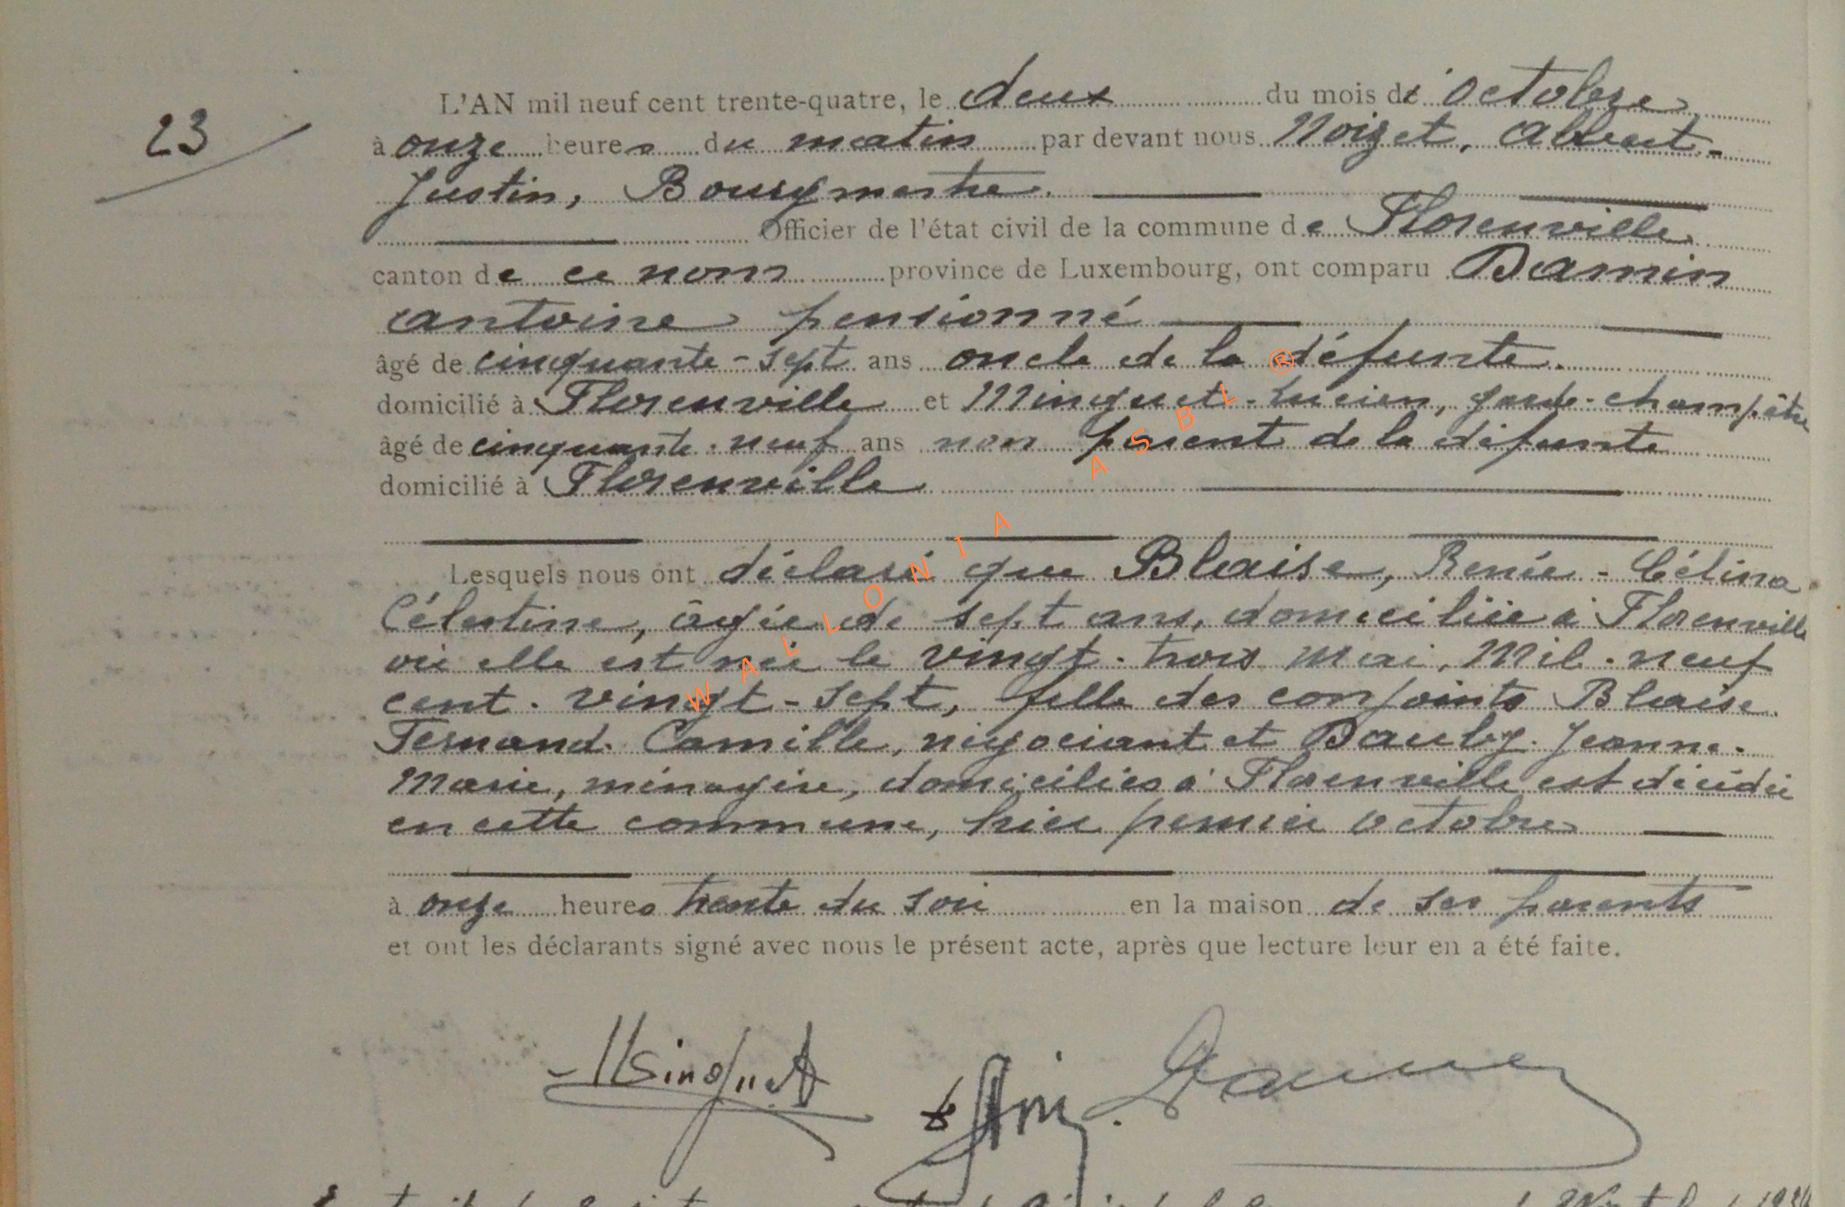 23
L'AN mil neuf cent trente-quatre, le deux du mois d'octobre
à onze heures du matin par devant nous Noizet, Albert-
Justin, Bourgmestre.
Officier de l'état civil de la commune de Florenville
canton de ce nom province de Luxembourg, ont comparu Damin
Antoine pensionné
âgé de cinquante-sept ans oncle de la défunte.
domicilié à Florenville et Minquet-Lucien, garde-champêtre
âgé de cinquante-neuf ans non parent de la défunte
domicilié à Florenville
Lesquels nous ont déclaré que Blaise, Renée-Célina
Célestine, âgée de sept ans, domiciliée à Florenville
où elle est née le vingt-trois Mai, Mil-neuf
cent-vingt-sept, fille des conjoints Blaise
Fernand-Camille, négociant et Dauby-Jeanne-
Marie, ménagère, domiciliés à Florenville est décédée
en cette commune, hier premier octobre
à onze heures trente du soir en la maison de ses parents
et ont les déclarants signé avec nous le présent acte, après que lecture leur en a été faite.
Minquet
WALLONIA ASBL ®